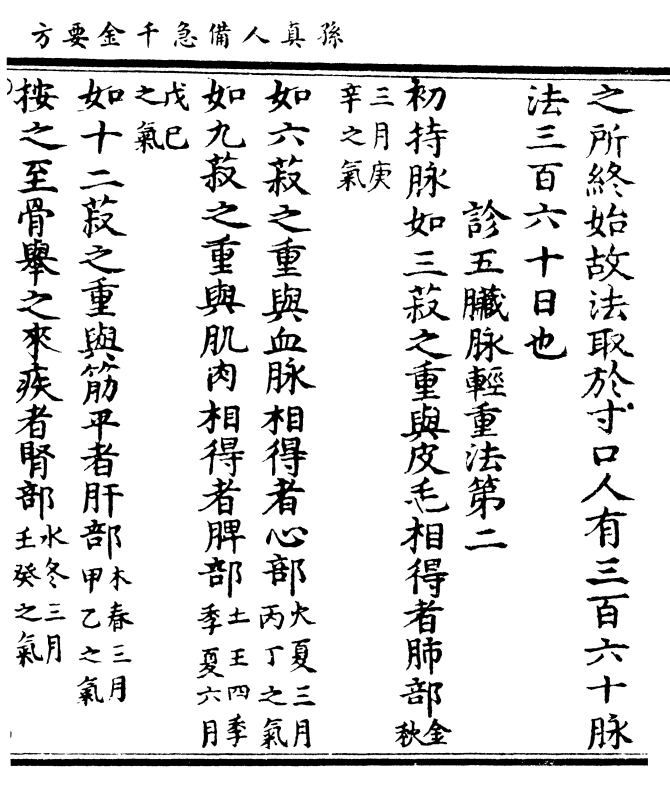 孫真人備急千金要方
之所終始故法取於寸口人有三百六十脉
法三百六十日也
診五臟脉輕重法第二
初持脉如三菽之重與皮毛相得者肺部金秋
三月庚辛之氣
如六菽之重與血脉相得者心部火夏三月丙丁之氣
如九菽之重與肌肉相得者脾部土王四季季夏六月
戊巳之氣
如十二菽之重與筋平者肝部木春三月甲乙之氣
按之至骨舉之來疾者腎部水冬三月壬癸之氣